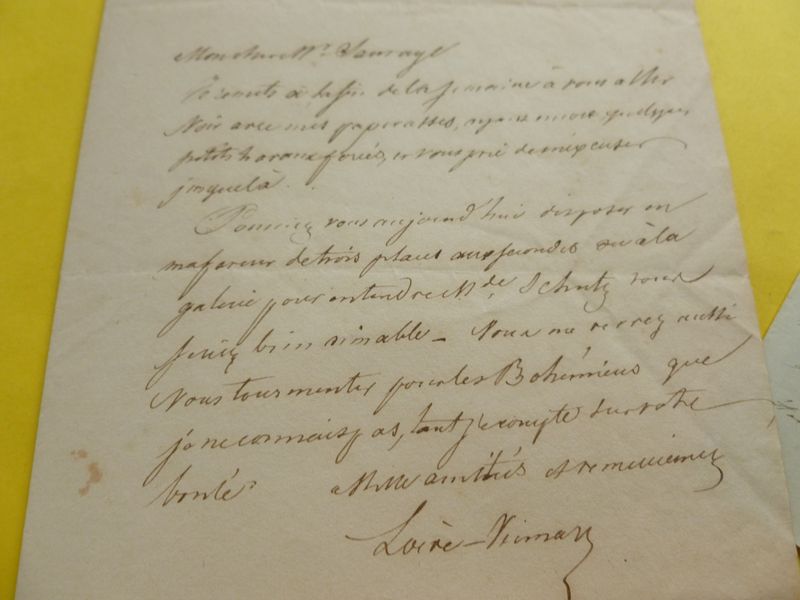 Mon cher Mr. Sauvage
Je compte à la fin de la semaine à vous aller
Voir avec mes paperasses, ayant encore quelques
petits travaux forcés, et vous prie de m'excuser
jusque là.
Pourriez vous aujourd'hui disposer en
ma faveur de trois places aux secondes ou à la
galerie pour entendre Mde. Schutz vous
seriez bien aimable - Vous me verrez aussi
Vous tourmenter pour les Bohémiens que
je ne connais pas, tant je compte sur votre
bonté
Mille amitiés et remerciemens
Loève-Veimars